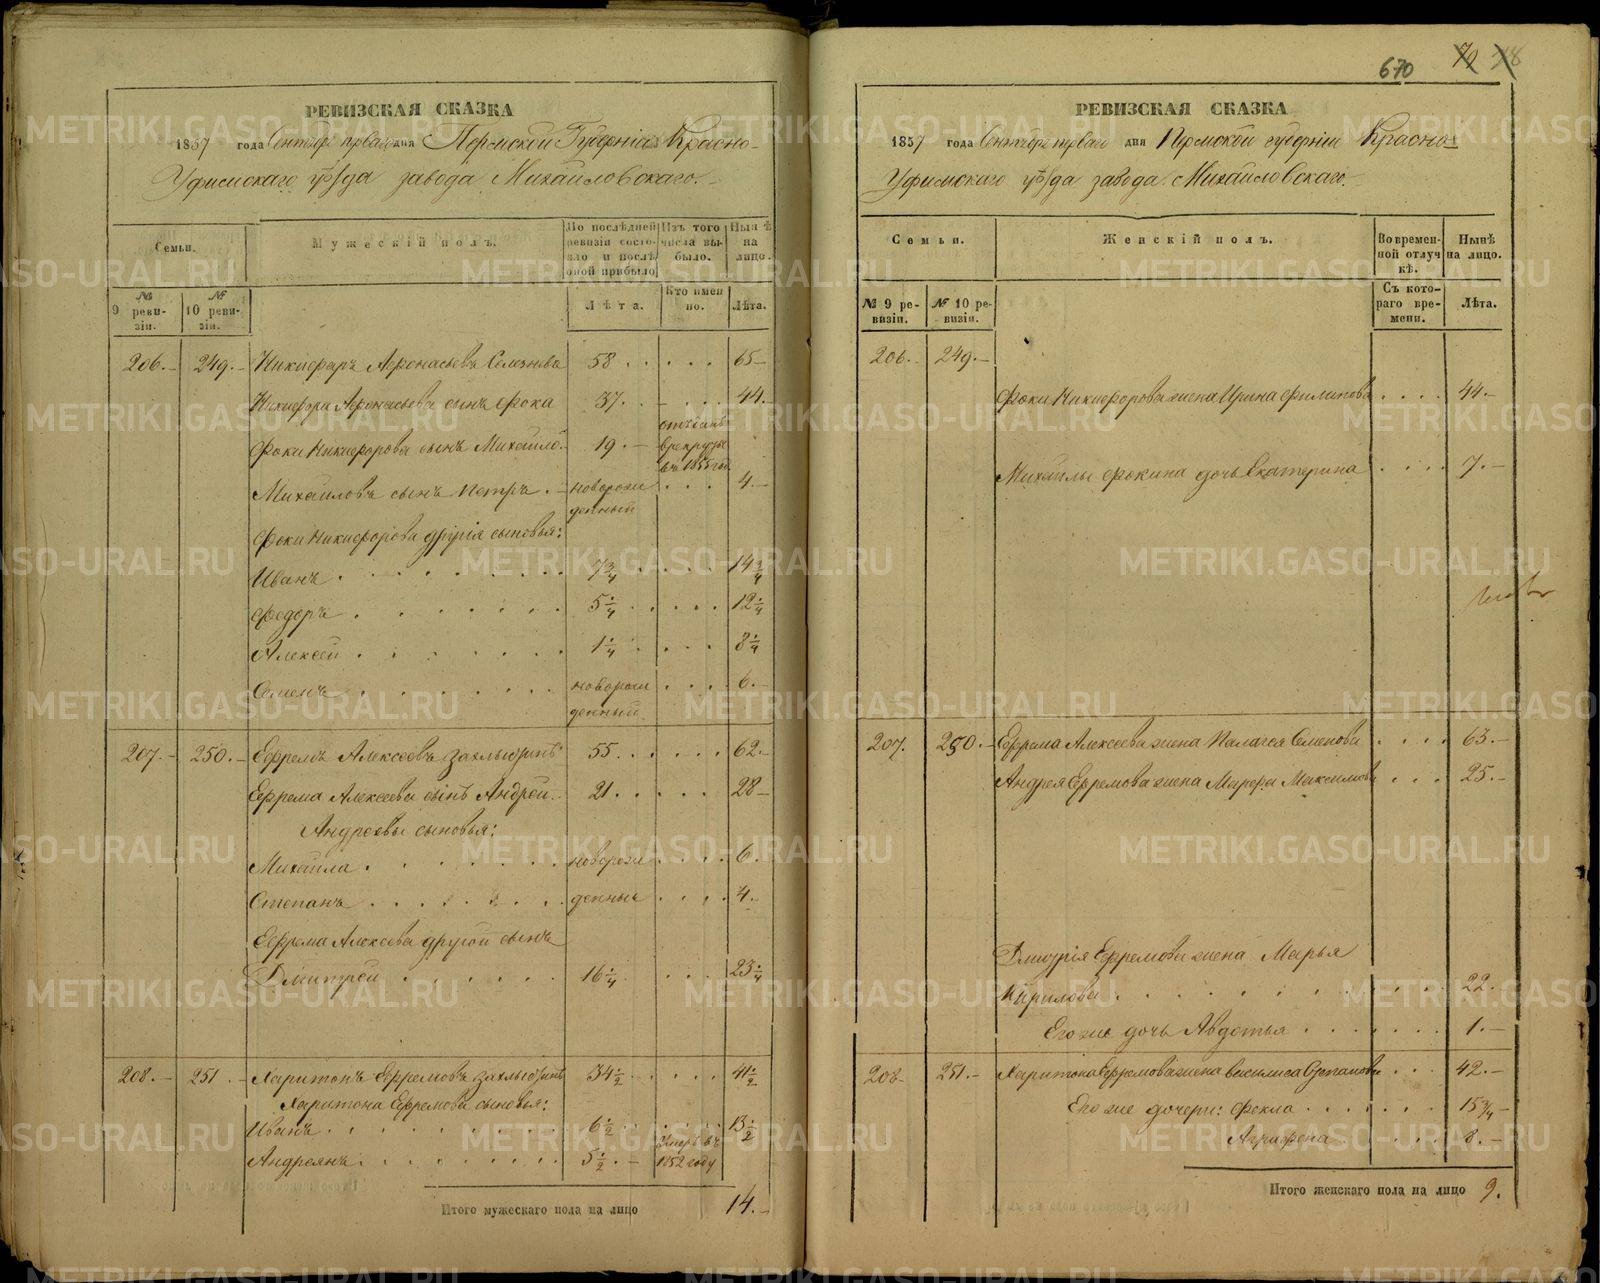 РЕВИЗСКАЯ СКАЗКА
1857 года Сентября перваго дня Пермской Губерніи Красно-
Уфимскаго уѣзда завода Михайловскаго.
Семьи.
Мужескій полъ.
По послѣдней ревизіи состояло и послѣ оной прибыло
Изъ того числа выбыло.
Нынѣ на лицо.
№ 9 ревизіи.
№ 10 ревизіи.
Лѣта.
Кто именно.
Лѣта.
206. 249. Никифоръ Афонасьевъ Селезневъ 58 65
Никифора Афонасьева сынъ Фока 37. 44.
Фоки Никифорова сынъ Михайло. 19 отданъ в рекруты въ 1855 год
Михайловъ сынъ Петръ. новорожденный 4.
Фоки Никифорова другія сыновья:
Иванъ 7 3/4 14 3/4
Федоръ 5 1/4 12 1/4
Алексей 1 1/4 8 1/4
Семенъ новорожденный 6.
207. 250. Ефремъ Алексеевъ Захлыстинъ 55 62.
Ефрема Алексеева сынъ Андрей. 21 28
Андреевы сыновья:
Михайла новорож 6.
Степанъ денные 4.
Ефрема Алексеева другой сынъ
Дмитрей 16 1/4 23 1/4
208. 251. Харитонъ Ефремовъ Захлыстинъ 34 1/2 41 1/2
Харитона Ефремова сыновья:
Иванъ 6 1/2 13 1/2
Андреянъ 5 1/2 Умеръ въ 1852 году
Итого мужескаго пола на лицо 14.
670 79 78
РЕВИЗСКАЯ СКАЗКА
1857 года Сентября перваго дня Пермской губерніи Красно-
Уфимскаго уѣзда завода Михайловскаго.
Семьи.
Женскій полъ.
Во временной отлучкѣ.
Нынѣ на лицо.
№ 9 ревизіи.
№ 10 ревизіи.
Съ котораго времени.
Лѣта.
206. 249.
Фоки Никифорова жена Ирина Филипова 44.
Михайлы Фокина дочь Екатерина 7.
207. 250. Ефрема Алексеева жена Палагея Семенова 63.
Андрея Ефремова жена Марфа Максимова 25.
Дмитрія Ефремова жена Марья
Кирилова 22.
Его же дочь Авдотья 1.
208. 251. Харитона Ефремова жена Василиса Степанова 42.
Его же дочери: Фекла 15 3/4
Агрифена 8.
Итого женскаго пола на лицо 9.
METRIKI.GASO-URAL.RU